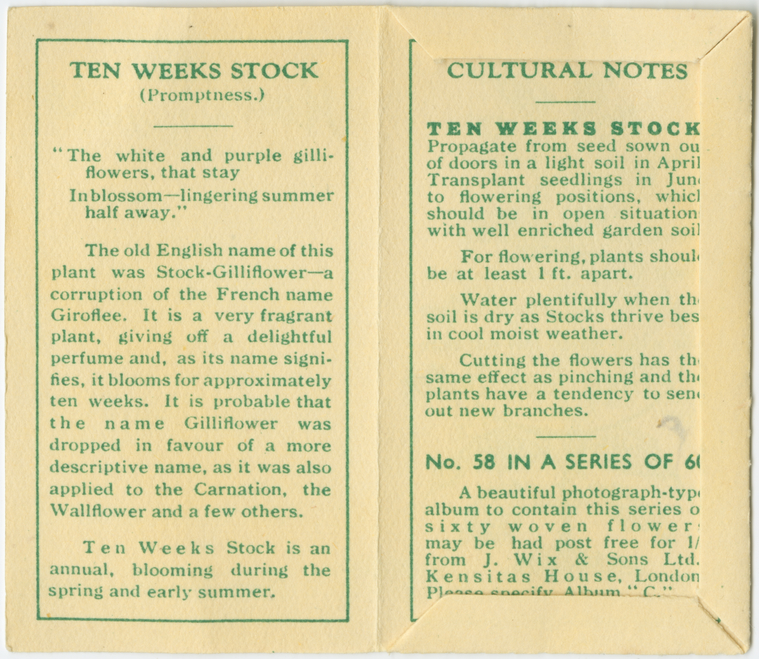 TEN WEEKS STOCK
(Promptness.)
"The white and purple gilli-
flowers, that stay
In blossom—lingering summer
half away."
The old English name of this
plant was Stock-Gilliflower—a
corruption of the French name
Giroflee. It is a very fragrant
plant, giving off a delightful
perfume and, as its name signi-
fies, it blooms for approximately
ten weeks. It is probable that
the name Gilliflower was
dropped in favour of a more
descriptive name, as it was also
applied to the Carnation, the
Wallflower and a few others.
Ten Weeks Stock is an
annual, blooming during the
spring and early summer.
CULTURAL NOTES
TEN WEEKS STOCK
Propagate from seed sown ou
of doors in a light soil in April
Transplant seedlings in Jun
to flowering positions, whic
should be in open situation
with well enriched garden soil
For flowering, plants shoul
be at least 1 ft. apart.
Water plentifully when th
soil is dry as Stocks thrive bes
in cool moist weather.
Cutting the flowers has th
same effect as pinching and th
plants have a tendency to sen
out new branches.
No. 58 IN A SERIES OF 6
A beautiful photograph-typ
album to contain this series o
sixty woven flower
may be had post free for 1/
from J. Wix & Sons Ltd.
Kensitas House, London
Please specify Album "C."